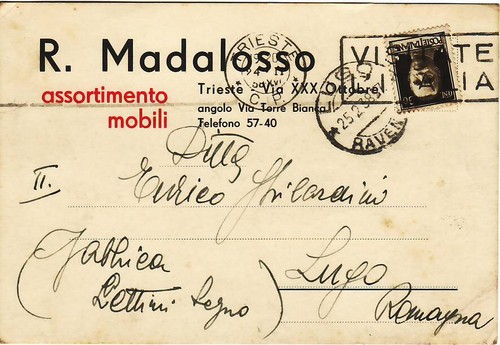 R. Madalosso
assortimento
mobili
Trieste - Via XXX Ottobre
angolo Via Terre Bianca
Telefono 57-40
TRIESTE
C.P.
LUGO
25.2.38
RAVEN
VI TE
IA
POSTE ITALIANE
Ditta
II.
Enrico Ghilardini
(Fabbrica
Lettini legno)
Lugo
Romagna